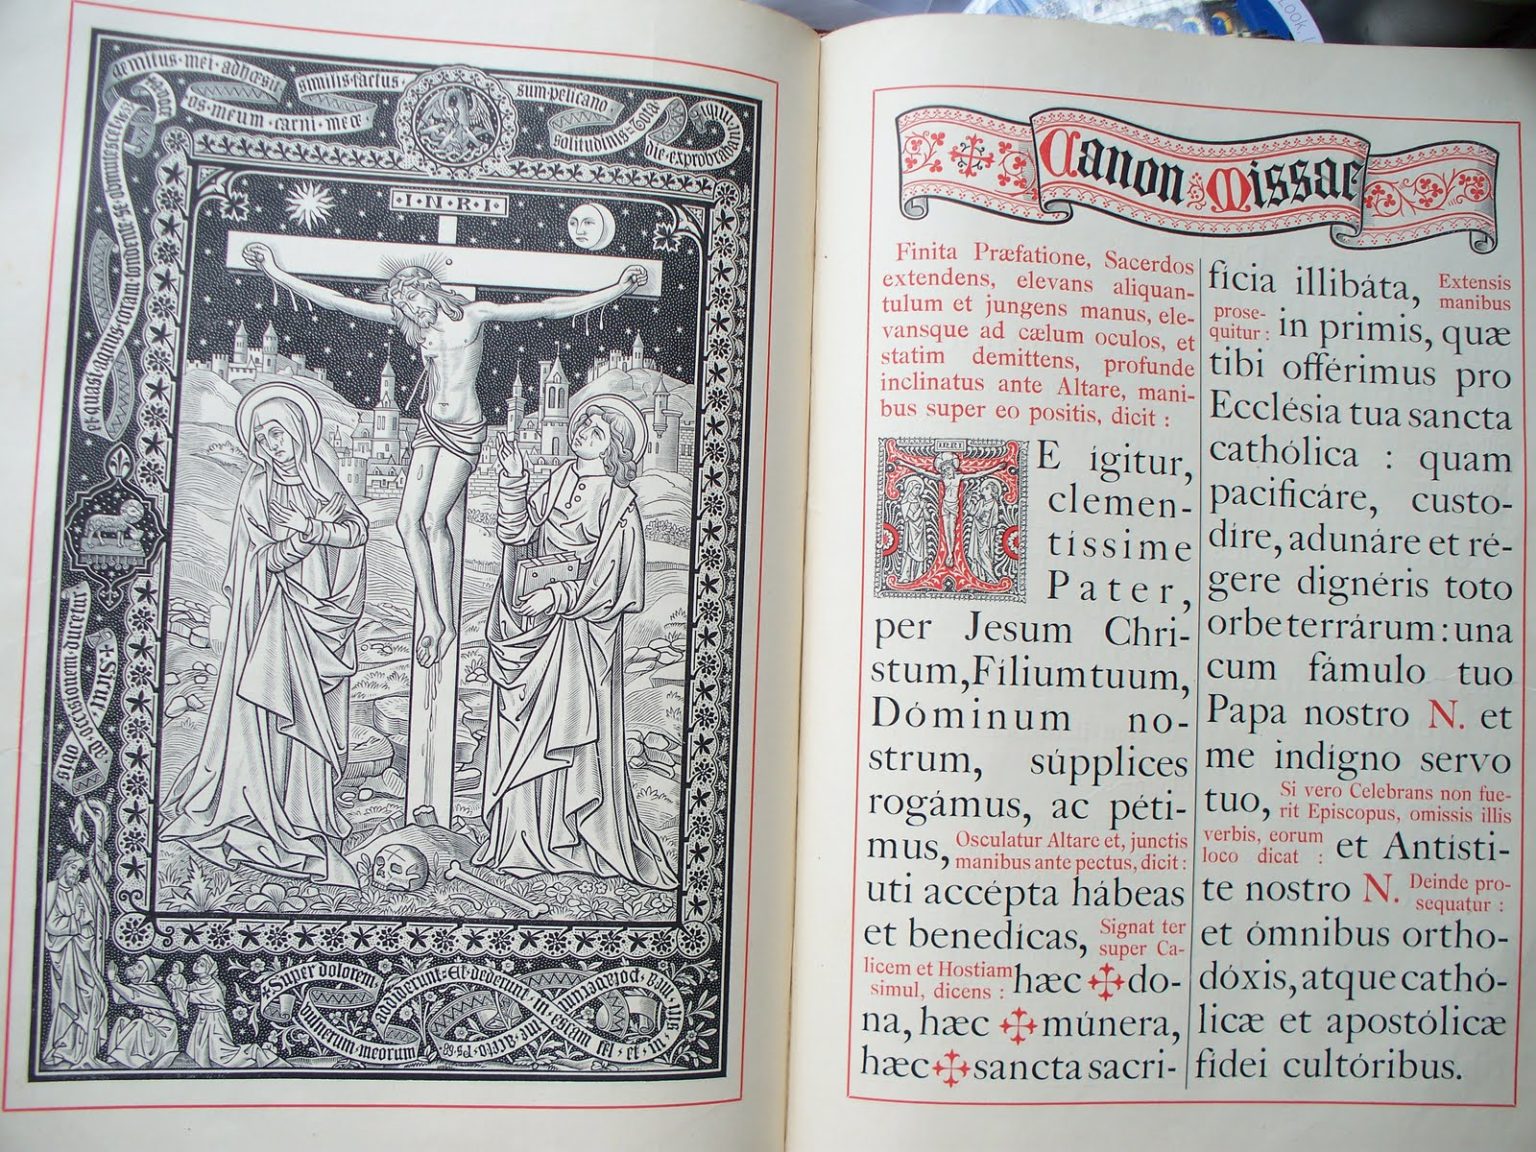 gemitus · mei · adhœsit
os · meum · carni · meœ
similis · factus ·
sum · pelicano
solitudinis
Tota
die · exprobrabant
et · quasi · agnus · coram · tondente · se
sicut
ad · occisionem · ducetur
· I · N · R · I ·
Super dolorem
vulnerum · meorum
addiderunt · Et · dederunt · in
Look,
Canon Missae
Finita Præfatione, Sacerdos
extendens, elevans aliquan-
tulum et jungens manus, ele-
vansque ad cælum oculos, et
statim demittens, profunde
inclinatus ante Altare, mani-
bus super eo positis, dicit :
INRI
TE ígitur,
clemen-
tíssime
Pater,
per Jesum Chri-
stum, Fílium tuum,
Dóminum no-
strum, súpplices
rogámus, ac péti-
mus, Osculatur Altare et, junctis
manibus ante pectus, dicit :
uti accépta hábeas
et benedícas, Signat ter
super Ca-
licem et Hostiam
simul, dicens : hæc ✠ do-
na, hæc ✠ múnera,
hæc ✠ sancta sacri-
fícia illibáta, Extensis
manibus
prose-
quitur : in primis, quæ
tibi offérimus pro
Ecclésia tua sancta
cathólica : quam
pacificáre, custo-
díre, adunáre et ré-
gere dignéris toto
orbe terrárum : una
cum fámulo tuo
Papa nostro N. et
me indígno servo
tuo, Si vero Celebrans non fue-
rit Episcopus, omissis illis
verbis, eorum
loco dicat : et Antísti-
te nostro N. Deinde pro-
sequatur :
et ómnibus ortho-
dóxis, atque cathó-
licæ et apostólicæ
fídei cultóribus.